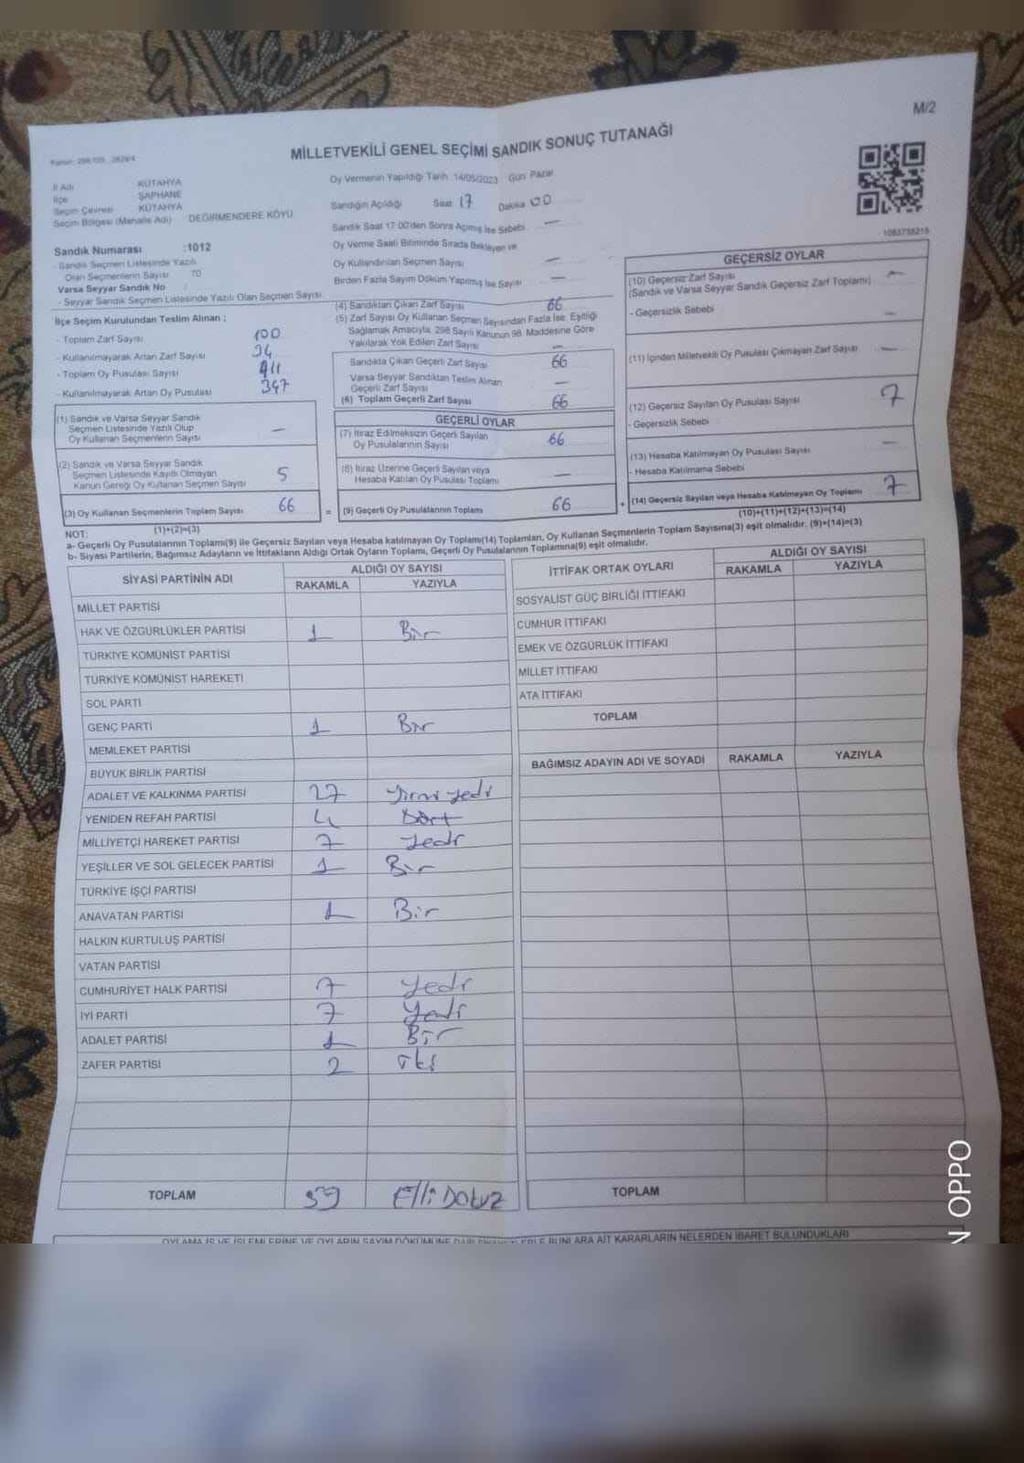 M/2
MİLLETVEKİLİ GENEL SEÇİMİ SANDIK SONUÇ TUTANAĞI
İl Adı KÜTAHYA
İlçe ŞAPHANE
Seçim Çevresi KÜTAHYA
Seçim Bölgesi (Mahalle Adı) DEĞİRMENDERE KÖYÜ
Sandık Numarası :1012
- Sandık Seçmen Listesinde Yazılı
Olan Seçmenlerin Sayısı 70
Varsa Seyyar Sandık No
- Seyyar Sandık Seçmen Listesinde Yazılı Olan Seçmen Sayısı
Oy Vermenin Yapıldığı Tarih :14/05/2023 Gün Pazar
Sandığın Açıldığı Saat 17 Dakika 00
Sandık Saat 17.00'den Sonra Açılmış İse Sebebi —
Oy Verme Saati Bitiminde Sırada Bekleyen ve
Oy Kullandırılan Seçmen Sayısı —
Birden Fazla Sayım Döküm Yapılmış İse Sayısı —
1083738215
İlçe Seçim Kurulundan Teslim Alınan ;
- Toplam Zarf Sayısı 100
- Kullanılmayarak Artan Zarf Sayısı 34
- Toplam Oy Pusulası Sayısı 411
- Kullanılmayarak Artan Oy Pusulası 347
(1) Sandık ve Varsa Seyyar Sandık
Seçmen Listesinde Yazılı Olup
Oy Kullanan Seçmenlerin Sayısı —
(2) Sandık ve Varsa Seyyar Sandık
Seçmen Listesinde Kayıtlı Olmayan
Kanun Gereği Oy Kullanan Seçmen Sayısı 5
(3) Oy Kullanan Seçmenlerin Toplam Sayısı 66
(1)+(2)=(3)
(4) Sandıktan Çıkan Zarf Sayısı 66
(5) Zarf Sayısı Oy Kullanan Seçmen Sayısından Fazla İse, Eşitliği
Sağlamak Amacıyla, 298 Sayılı Kanunun 98. Maddesine Göre
Yakılarak Yok Edilen Zarf Sayısı —
Sandıkta Çıkan Geçerli Zarf Sayısı 66
Varsa Seyyar Sandıktan Teslim Alınan
Geçerli Zarf Sayısı —
(6) Toplam Geçerli Zarf Sayısı 66
GEÇERLİ OYLAR
(7) İtiraz Edilmeksizin Geçerli Sayılan
Oy Pusulalarının Sayısı 66
(8) İtiraz Üzerine Geçerli Sayılan veya
Hesaba Katılan Oy Pusulası Toplamı —
= (9) Geçerli Oy Pusulalarının Toplamı 66 +
GEÇERSİZ OYLAR
(10) Geçersiz Zarf Sayısı
(Sandık ve Varsa Seyyar Sandık Geçersiz Zarf Toplamı) —
- Geçersizlik Sebebi —
(11) İçinden Milletvekili Oy Pusulası Çıkmayan Zarf Sayısı —
(12) Geçersiz Sayılan Oy Pusulası Sayısı 7
- Geçersizlik Sebebi
(13) Hesaba Katılmayan Oy Pusulası Sayısı —
- Hesaba Katılmama Sebebi
(14) Geçersiz Sayılan veya Hesaba Katılmayan Oy Toplamı 7
(10)+(11)+(12)+(13)=(14)
NOT:
a- Geçerli Oy Pusulalarının Toplamı(9) ile Geçersiz Sayılan veya Hesaba katılmayan Oy Toplamı(14) Toplamları, Oy Kullanan Seçmenlerin Toplam Sayısına(3) eşit olmalıdır. (9)+(14)=(3)
b- Siyasi Partilerin, Bağımsız Adayların ve İttifakların Aldığı Ortak Oyların Toplamı, Geçerli Oy Pusulalarının Toplamına(9) eşit olmalıdır.
SİYASİ PARTİNİN ADI ALDIĞI OY SAYISI
RAKAMLA YAZIYLA
MİLLET PARTİSİ
HAK VE ÖZGÜRLÜKLER PARTİSİ 1 Bir
TÜRKİYE KOMÜNİST PARTİSİ
TÜRKİYE KOMÜNİST HAREKETİ
SOL PARTİ
GENÇ PARTİ 1 Bir
MEMLEKET PARTİSİ
BÜYÜK BİRLİK PARTİSİ
ADALET VE KALKINMA PARTİSİ 27 Yirmi yedi
YENİDEN REFAH PARTİSİ 4 Dört
MİLLİYETÇİ HAREKET PARTİSİ 7 Yedi
YEŞİLLER VE SOL GELECEK PARTİSİ 1 Bir
TÜRKİYE İŞÇİ PARTİSİ
ANAVATAN PARTİSİ 1 Bir
HALKIN KURTULUŞ PARTİSİ
VATAN PARTİSİ
CUMHURİYET HALK PARTİSİ 7 Yedi
İYİ PARTİ 7 Yedi
ADALET PARTİSİ 1 Bir
ZAFER PARTİSİ 2 İki
TOPLAM 59 Elli Dokuz
İTTİFAK ORTAK OYLARI ALDIĞI OY SAYISI
RAKAMLA YAZIYLA
SOSYALİST GÜÇ BİRLİĞİ İTTİFAKI
CUMHUR İTTİFAKI
EMEK VE ÖZGÜRLÜK İTTİFAKI
MİLLET İTTİFAKI
ATA İTTİFAKI
TOPLAM
BAĞIMSIZ ADAYIN ADI VE SOYADI RAKAMLA YAZIYLA
TOPLAM
N OPPO